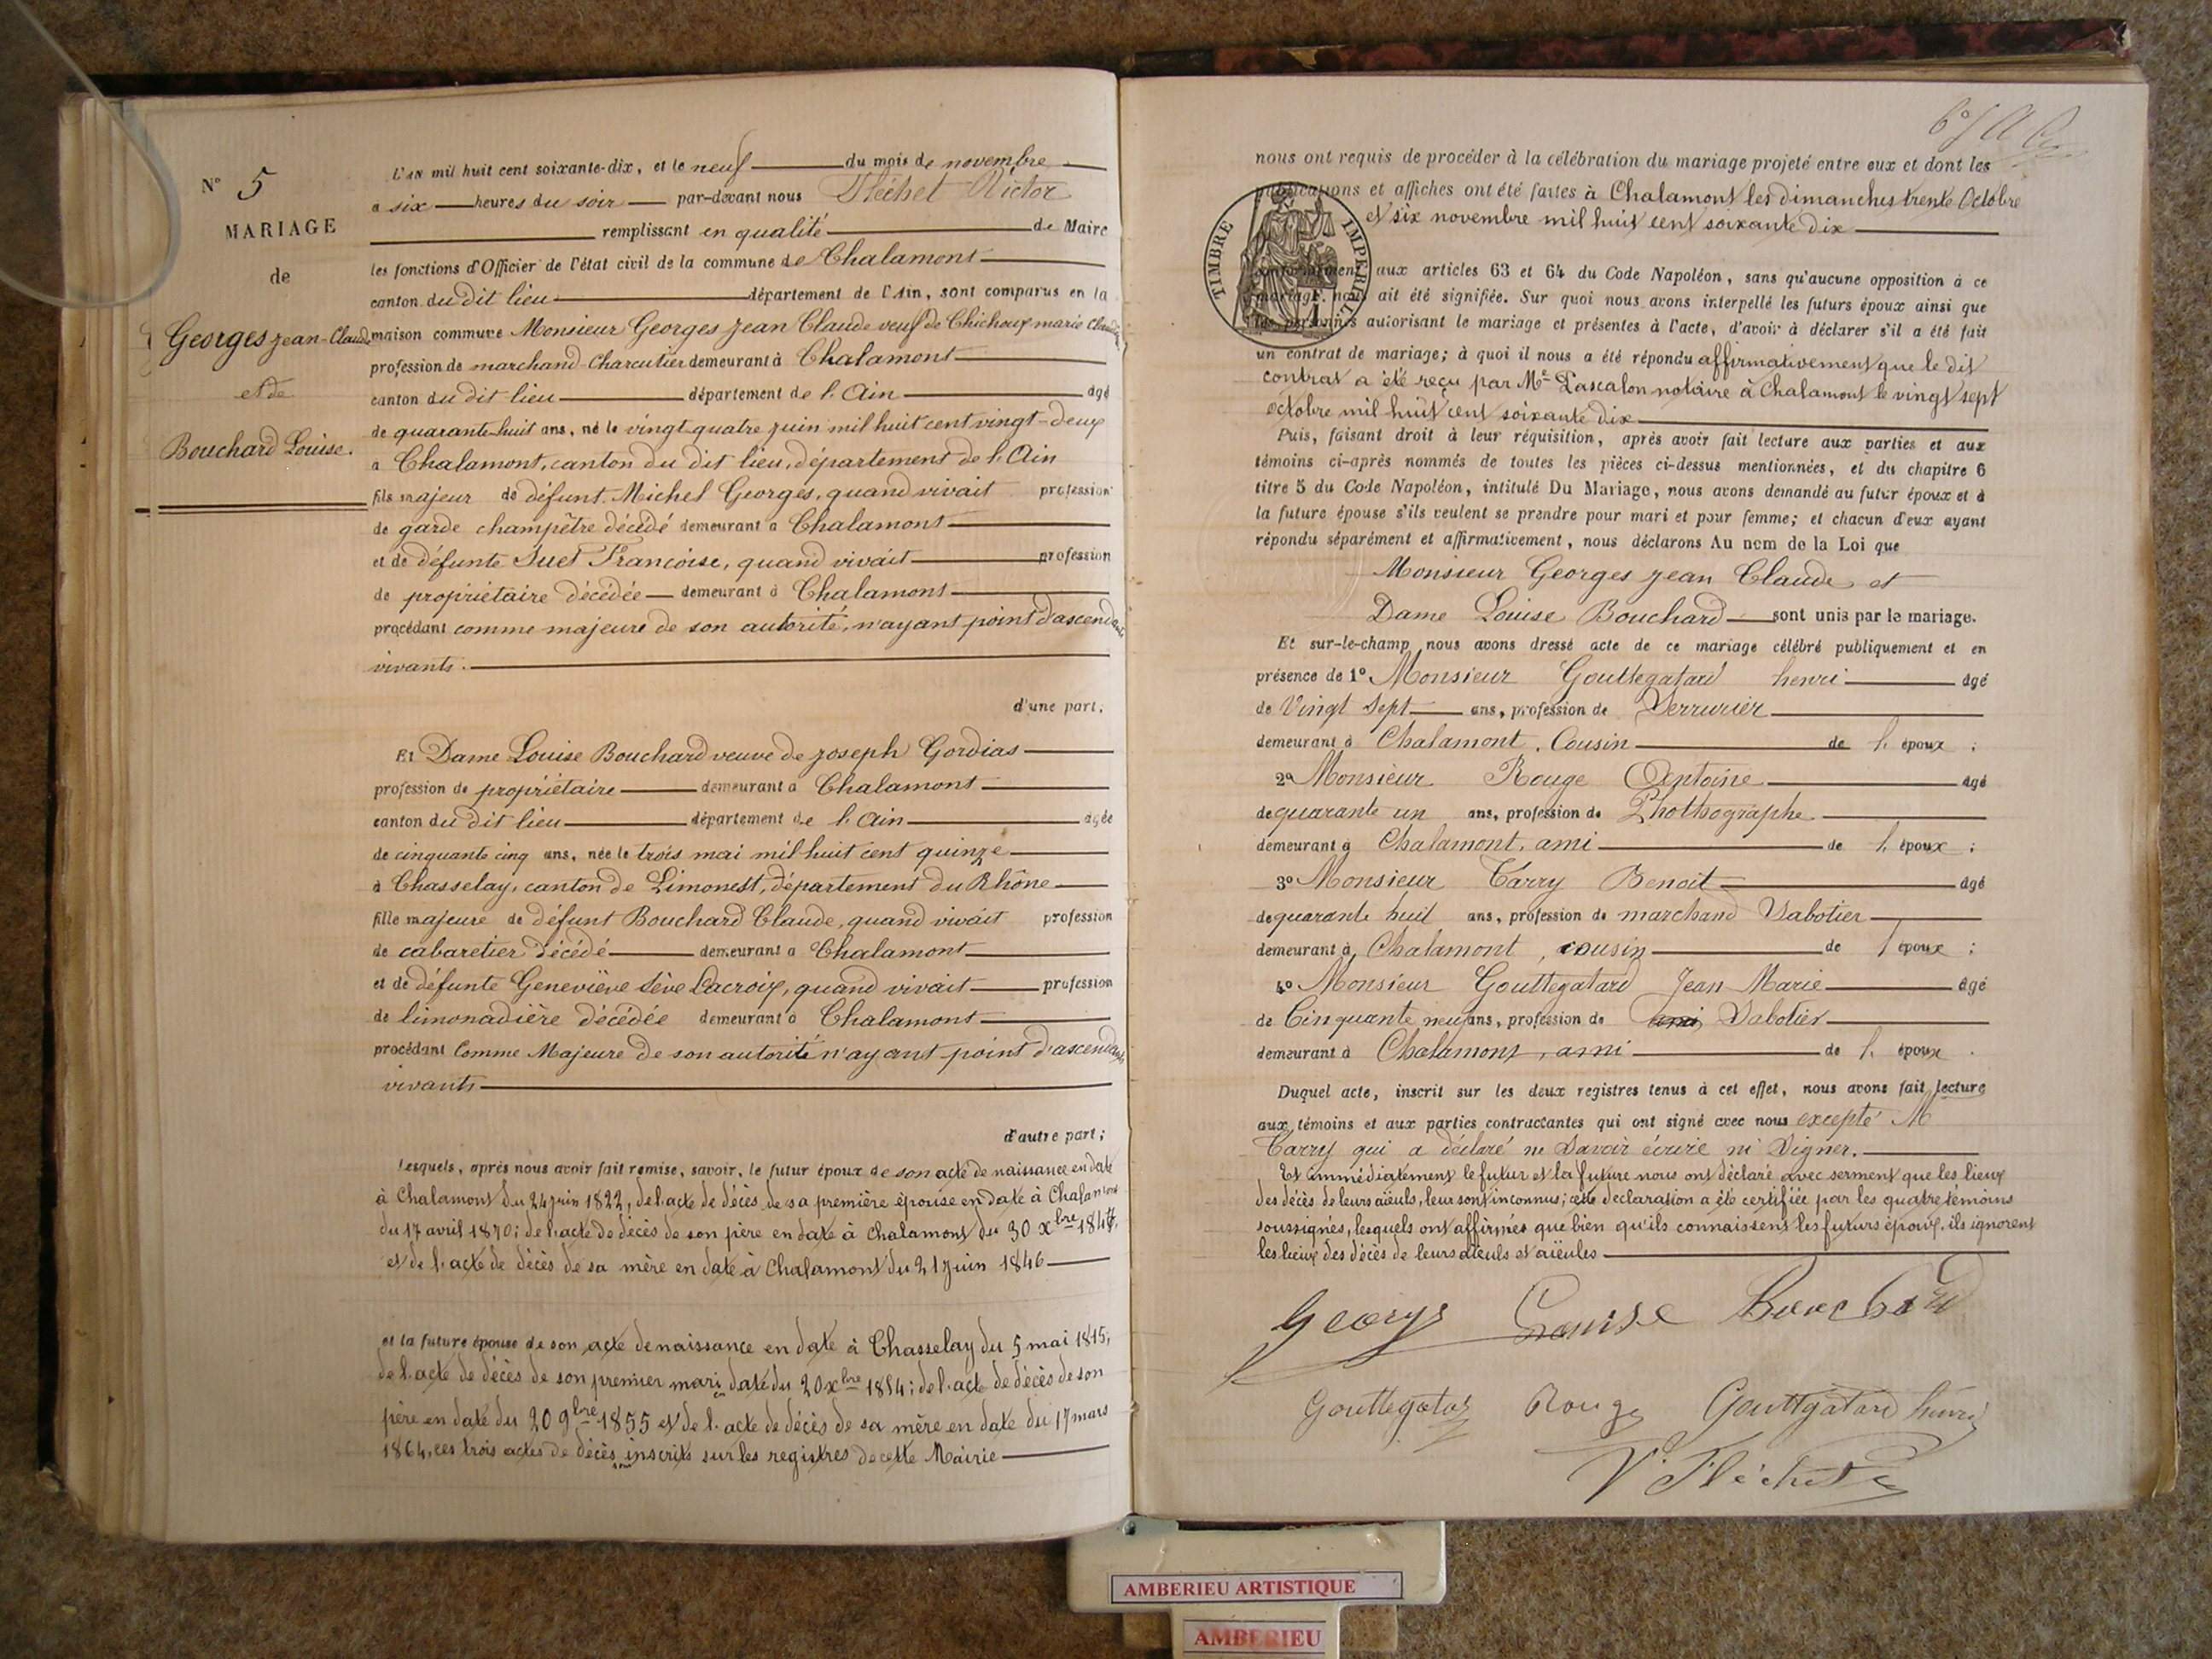 N° 5
MARIAGE
de
Georges Jean-Claude
et de
Bouchard Louise.
L'AN mil huit cent soixante-dix, et le neuf du mois de novembre
a six heures du soir par-devant nous Fléchet Victor
remplissant en qualité de Maire
les fonctions d'Officier de l'état civil de la commune de Chalamont
canton du dit lieu département de l'Ain, sont comparus en la
maison commune Monsieur Georges Jean Claude veuf de Chichoux marie Claudine
profession de marchand-Charcutier demeurant à Chalamont
canton du dit lieu département de l'Ain âgé
de quarante-huit ans, né le vingt quatre juin mil huit cent vingt-deux
a Chalamont, canton du dit lieu, département de l'Ain
fils majeur de défunt Michel Georges, quand vivait profession
de garde champêtre décédé demeurant a Chalamont
et de défunte Suet Françoise, quand vivait profession
de propriétaire décédée demeurant à Chalamont
procédant comme majeure de son autorité, n'ayant point d'ascendants
vivants.
d'une part;
Et Dame Louise Bouchard veuve de Joseph Gordias
profession de propriétaire demeurant a Chalamont
canton du dit lieu département de l'Ain agée
de cinquante cinq ans, née le trois mai mil huit cent quinze
à Chasselay, canton de Limonest, département du Rhône
fille majeure de défunt Bouchard Claude, quand vivait profession
de cabaretier décédé demeurant a Chalamont
et de défunte Geneviève Sève Lacroix, quand vivait profession
de limonadière décédée demeurant à Chalamont
procédant Comme Majeure de son autorité n'ayant point d'ascendants
vivants
d'autre part;
lesquels, après nous avoir fait remise, savoir, le futur époux de son acte de naissance en date
à Chalamont du 24 juin 1822, de l'acte de décès de sa première épouse en date à Chalamont
du 17 avril 1870; de l'acte de décès de son père en date à Chalamont du 30 xbre
et de l'acte de décès de sa mère en date à Chalamont du 21 juin 1846
et la future épouse de son acte de naissance en date à Chasselay du 5 mai 1815;
de l'acte de décès de son premier mari en daté du 20 xbre 1854; de l'acte de décès de son
père en date du 20 9bre 1855 et de l'acte de décès de sa mère en date du 17 mars
1864, ces trois actes de décès sont inscrits sur les registres de cette Mairie
nous ont requis de procéder à la célébration du mariage projeté entre eux et dont les
publications et affiches ont été faites à Chalamont les dimanches trente Octobre
et six novembre mil huit cent soixante dix
TIMBRE IMPERIAL
conformément aux articles 63 et 64 du Code Napoléon, sans qu'aucune opposition à ce
mariage nous ait été signifiée. Sur quoi nous avons interpellé les futurs époux ainsi que
les personnes autorisant le mariage et présentes à l'acte, d'avoir à déclarer s'il a été fait
un contrat de mariage; à quoi il nous a été répondu affirmativement que le dit
contrat a été reçu par Me Pascalon notaire à Chalamont le vingt sept
octobre mil huit cent soixante dix
Puis, faisant droit à leur réquisition, après avoir fait lecture aux parties et aux
témoins ci-après nommés de toutes les pièces ci-dessus mentionnées, et du chapitre 6
titre 5 du Code Napoléon, intitulé Du Mariage, nous avons demandé au futur époux et à
la future épouse s'ils veulent se prendre pour mari et pour femme; et chacun d'eux ayant
répondu séparément et affirmativement, nous déclarons Au nom de la Loi que
Monsieur Georges Jean Claude et
Dame Louise Bouchard sont unis par le mariage.
Et sur-le-champ nous avons dressé acte de ce mariage célébré publiquement et en
présence de 1° Monsieur Gouttegatard henri âgé
de Vingt Sept ans, profession de Serrurier
demeurant à Chalamont, Cousin de l'époux;
2° Monsieur Rouge Antoine âgé
de quarante un ans, profession de Phothographe
demeurant à Chalamont, ami de l'époux;
3° Monsieur Carry Benoit âgé
de quarante huit ans, profession de marchand Sabotier
demeurant à Chalamont, cousin de l'époux;
4° Monsieur Gouttegatard Jean Marie âgé
de Cinquante neuf ans, profession de Sabotier
demeurant à Chalamont, ami de l'époux.
Duquel acte, inscrit sur les deux registres tenus à cet effet, nous avons fait lecture
aux témoins et aux parties contractantes qui ont signé avec nous excepté M
Carry qui a déclaré ne Savoir écrire ni Signer.
Et immédiatement le futur et la future nous ont déclaré avec serment que les lieux
des décès de leurs aïeuls, leur sont inconnus; cette déclaration a été certifiée par les quatre témoins
soussignés, lesquels ont affirmés que bien qu'ils connaissent les futurs époux, ils ignorent
les lieux des décès de leurs aïeuls et aïeules
Georges Louise Bouchard
Gouttegatard Rouge Gouttgatard henri
V. Fléchet
AMBERIEU ARTISTIQUE
AMBERIEU